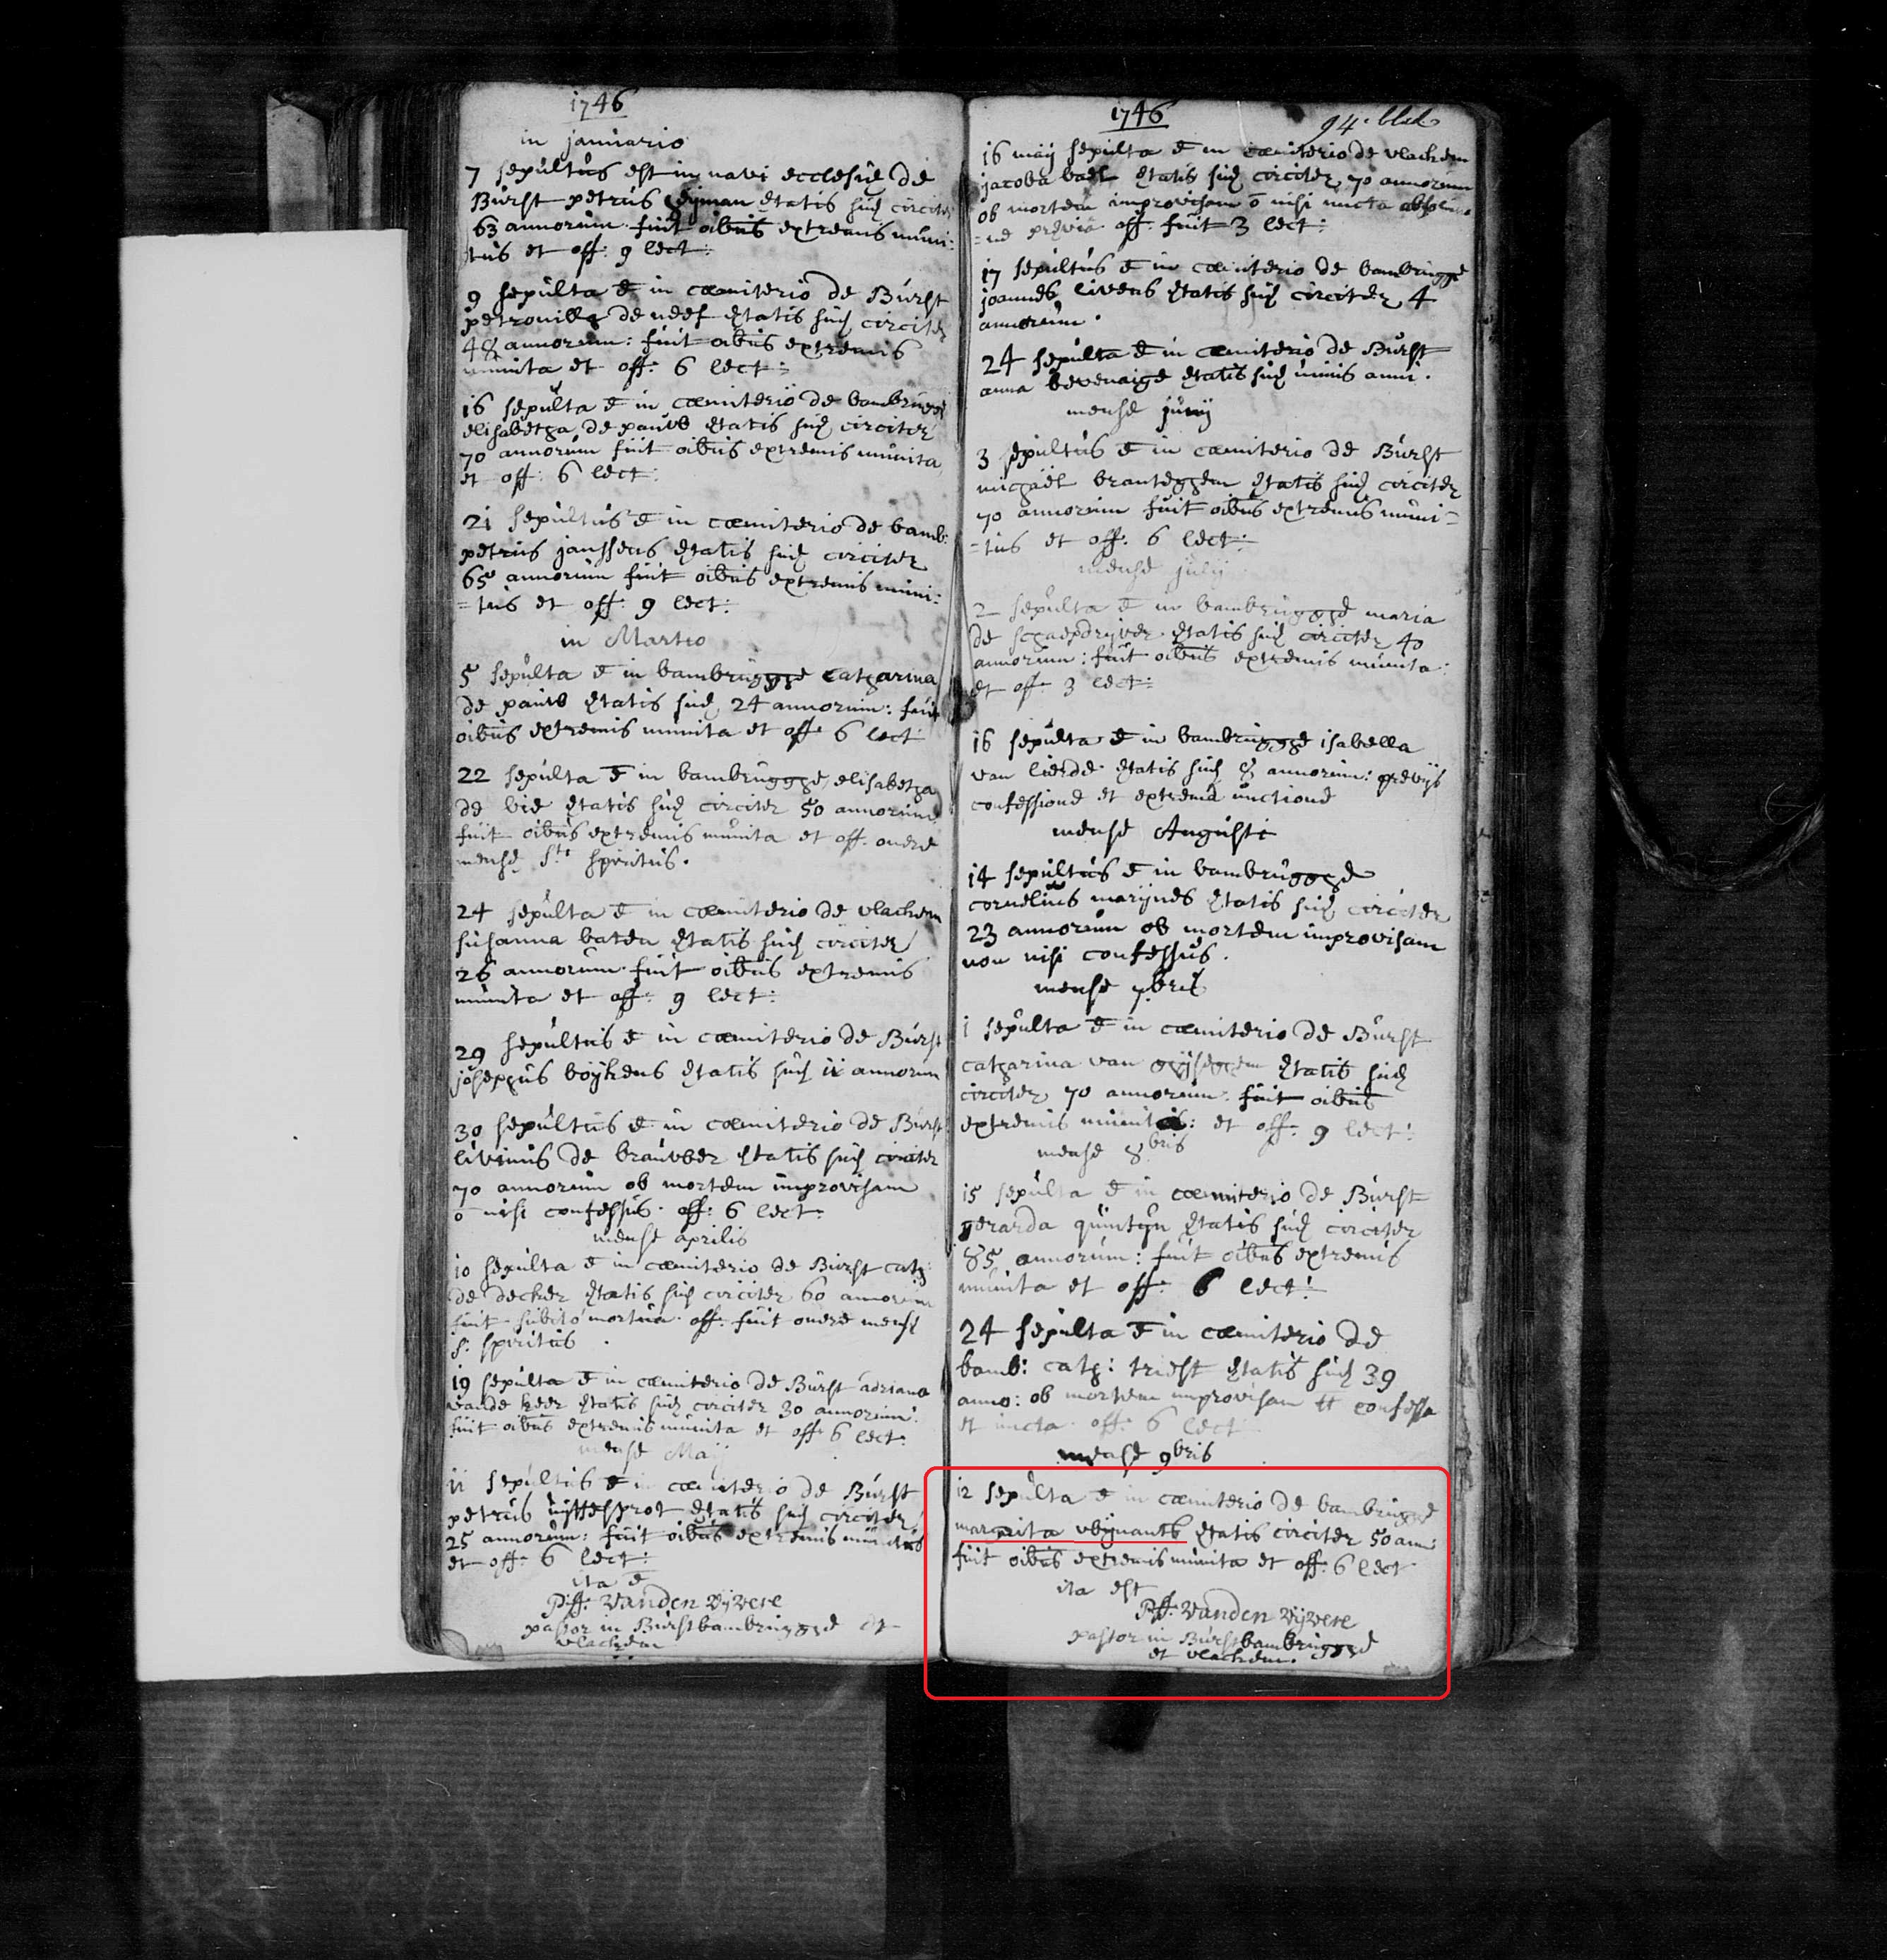 1746
in januario
7 sepultus est in navi ecclesiæ de
Burst petrus eyman ætatis suæ circiter
63 annorum fuit oibus extremis muni:
tus et off: 9 lect:
9 sepulta ē in cœmiterio de Burst
petronilla de neef ætatis suæ circiter
48 annorum: fuit oibus extremis
munita et off: 6 lect:
16 sepulta ē in cœmiterio de bambrugge
elisabetha de pauw ætatis suæ circiter
70 annorum fuit oibus extremis munita
et off: 6 lect:
21 sepultus ē in cœmiterio de bamb:
petrus janssens ætatis suæ circiter
65 annorum fuit oibus extremis muni:
=tus et off: 9 lect:
in Martio
5 sepulta ē in bambrugghe catharina
de pauw ætatis suæ 24 annorum: fuit
oibus extremis munita et off: 6 lect
22 sepulta ē in bambrugghe elisabetha
de vie ætatis suæ circiter 50 annorum
fuit oibus extremis munita et off. onere
mensæ sti spiritus.
24 sepulta ē in cœmiterio de vlackem
susanna baten ætatis suæ circiter
26 annorum fuit oibus extremis
munita et off: 9 lect:
29 sepultus ē in cœmiterio de Burst
josephus boykens ætatis suæ ii annorum
30 sepultus ē in cœmiterio de Burst
livinus de brauwer ætatis suæ circiter
70 annorum ob mortem improvisam
ō nisi confessus. off: 6 lect:
mense aprilis
10 sepulta ē in cœmiterio de Burst cath:
de decker ætatis suæ circiter 60 annorum
fuit subito mortua. off: fuit onere mensæ
s: spiritus
19 sepulta ē in cœmiterio de Burst adriana
vande keer ætatis suæ circiter 30 annorum:
fuit oibus extremis munita et off: 6 lect:
mense Maij
ii sepultus ē in cœmiterio de Burst
petrus uyttesprot ætatis suæ circiter
25 annorum: fuit oibus extremis munitus
et off: 6 lect:
ita ē
P:ff: Vanden Vyvere
pastor in Burst bambrugghe et
vlackem
1746
94. blad
16 maij sepulta ē in cœmiterio de vlackem
jacoba bael ætatis suæ circiter 70 annorum
ob mortem improvisam ō nisi uncta
=ne prævia off: fuit 3 lect:
17 sepultus ē in cœmiterio de bambrugge
joannes livens ætatis suæ circiter 4
annorum.
24 sepulta ē in cœmiterio de Burst
anna bevenaige ætatis suæ unius anni.
mense junij
3 sepultus ē in cœmiterio de Burst
michaël branteghem ætatis suæ circiter
70 annorum fuit oibus extremis muni=
=tus et off: 6 lect:
mense julij
2 sepulta ē in bambrugghe maria
de schaepdryver ætatis suæ circiter 40
annorum: fuit oibus extremis munita:
et off: 3 lect:
16 sepulta ē in bambrugghe isabella
van lierde ætatis suæ 8 annorum: prævijs
confessione et extrema unctione
mense Augusti
14 sepultus ē in bambrugghe
cornelius marynes ætatis suæ circiter
23 annorum ob mortem improvisam
non nisi confessus.
mense 7bris
1 sepulta ē in cœmiterio de Burst
catharina van ghyseghem ætatis suæ
circiter 70 annorum. fuit oibus
extremis munita: et off: 9 lect:
mense 8bris
15 sepulta ē in cœmiterio de Burst
gerarda quintyn ætatis suæ circiter
85 annorum: fuit oibus extremis
munita et off: 6 lect:
24 sepulta ē in cœmiterio de
bamb: cath: triest ætatis suæ 39
anno: ob mortem improvisam tt confessa
et uncta off: 6 lect
mense 9bris
12 sepulta ē in cœmiterio de bambrugge
margrita wynants ætatis circiter 50 ann:
fuit oibus extremis munita et off: 6 lect
ita est
P:ff: Vanden Vyvere
pastor in Burst bambrugghe
et vlackem.